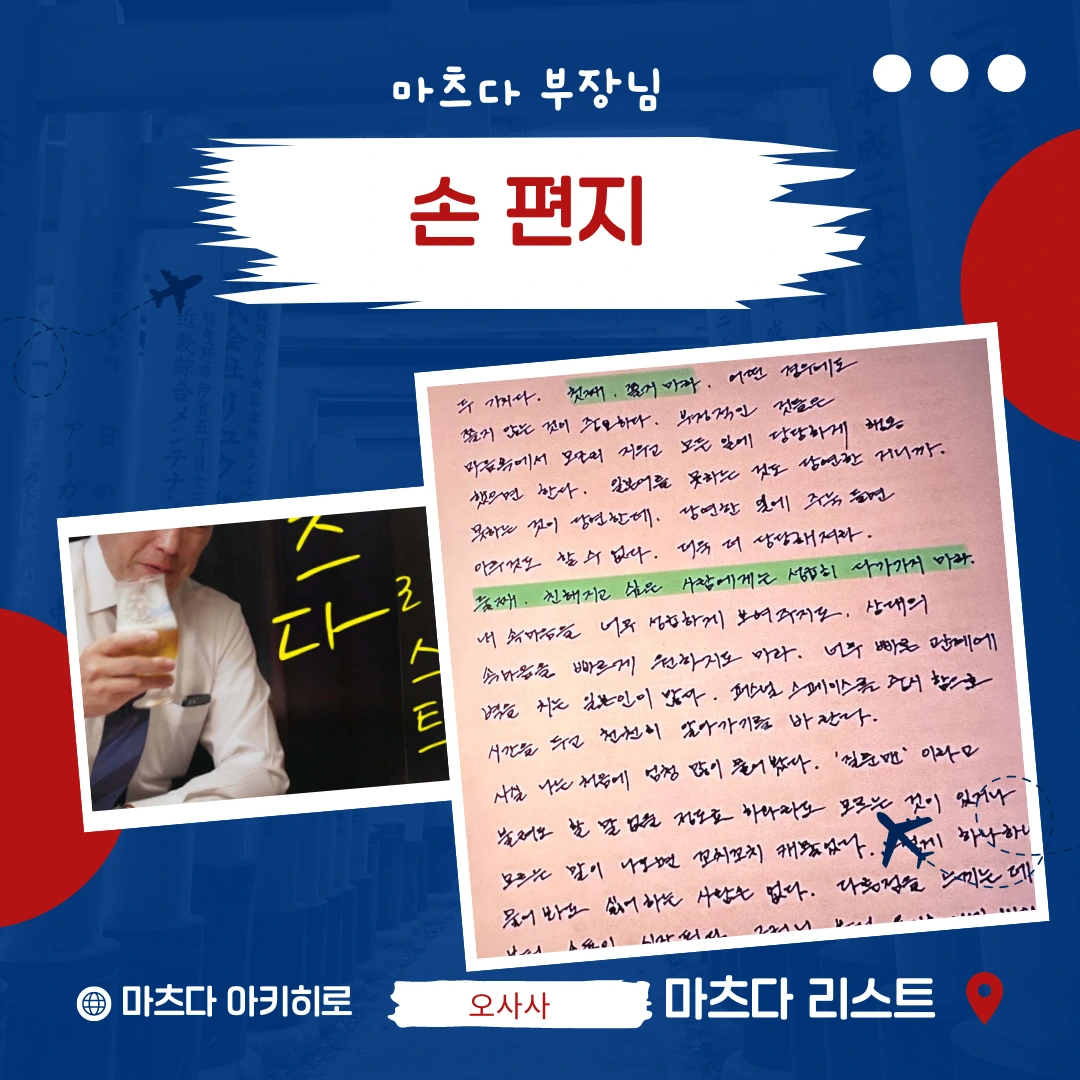 마츠다 부장님
손 편지
츠
다
리
스
트
두 가지다. 첫째. 쫄지 마라. 어떤 경우에도
쫄지 않는 것이 중요하다. 부정적인 것들은
마음속에서 모조리 지우고 모든 일에 당당하게 해요
했으면 한다. 일본어를 못하는 것도 당연한 거니까.
못하는 것이 당연한데. 당연한 일에 주눅 들면
아무것도 할 수 없다. 더욱 더 당당해져라.
둘째. 친해지고 싶은 사람에게는 성급히 다가가지 마라.
내 속마음을 너무 성급하게 보여주지도. 상대의
속마음을 빠르게 원하지도 마라. 너무 빠른 관계에
벽을 치는 일본인이 많아. 퍼스널 스페이스를 중시 함으로
시간을 두고 천천히 알아가기를 바란다.
사실 나는 처음에 엄청 많이 물어봤다. '질문맨' 이라고
불려도 할 말 없을 정도로 하와라도 모르는 것이 있거나
모르는 말이 나오면 꼬치꼬치 캐물었다. 하나하나
물어봐도 싫어하는 사람은 없다. 다른점을 느끼는 데
마츠다 아키히로
오사사
마츠다 리스트